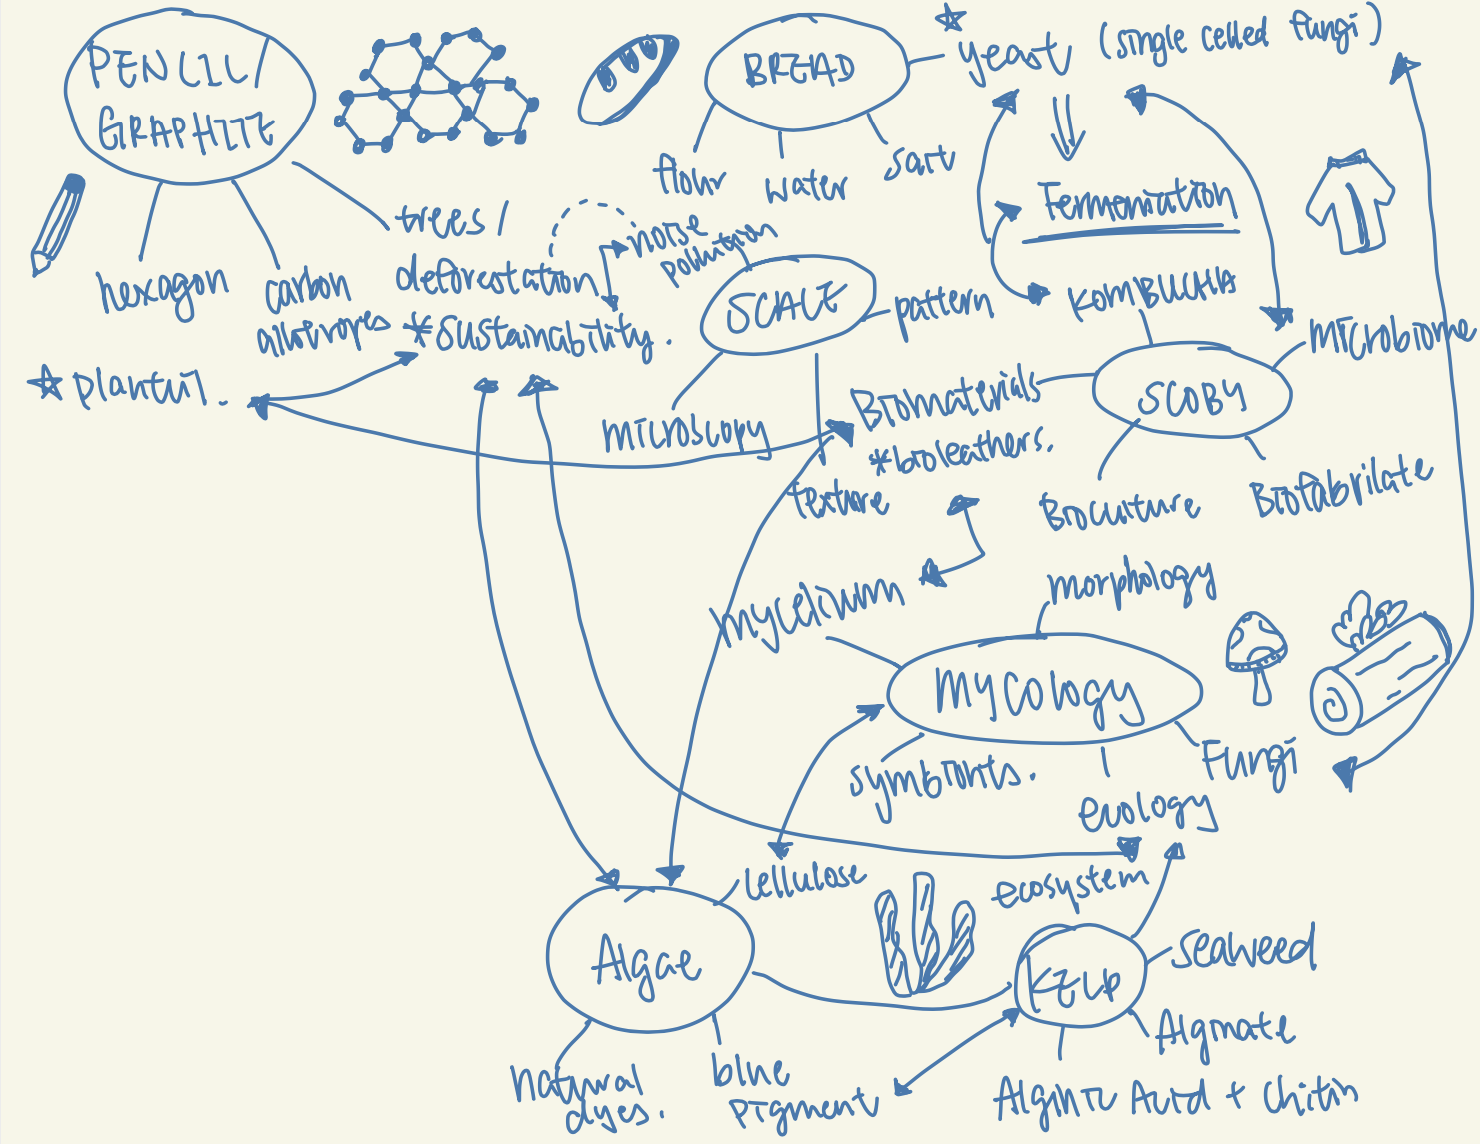 PENCIL/
GRAPHITE
hexagon
carbon
allotropes
trees/
deforestation
*sustainability.
☆ plantfil.
BREAD
☆
yeast (single celled fungi)
flour
water
salt
Fermentation
noise
pollution
SCALE
pattern
microscopy
texture
KOMBUCHA
SCOBY
microbiome
Biomaterials
*bioleathers.
Bioculture
Biofabricate
mycelium
morphology
MYCOlOGY
symbionts.
Fungi
ecology
cellulose
ecosystem
Algae
KELP
seaweed
Alginate
Alginic Acid + Chitin
natural
dyes.
blue
pigment